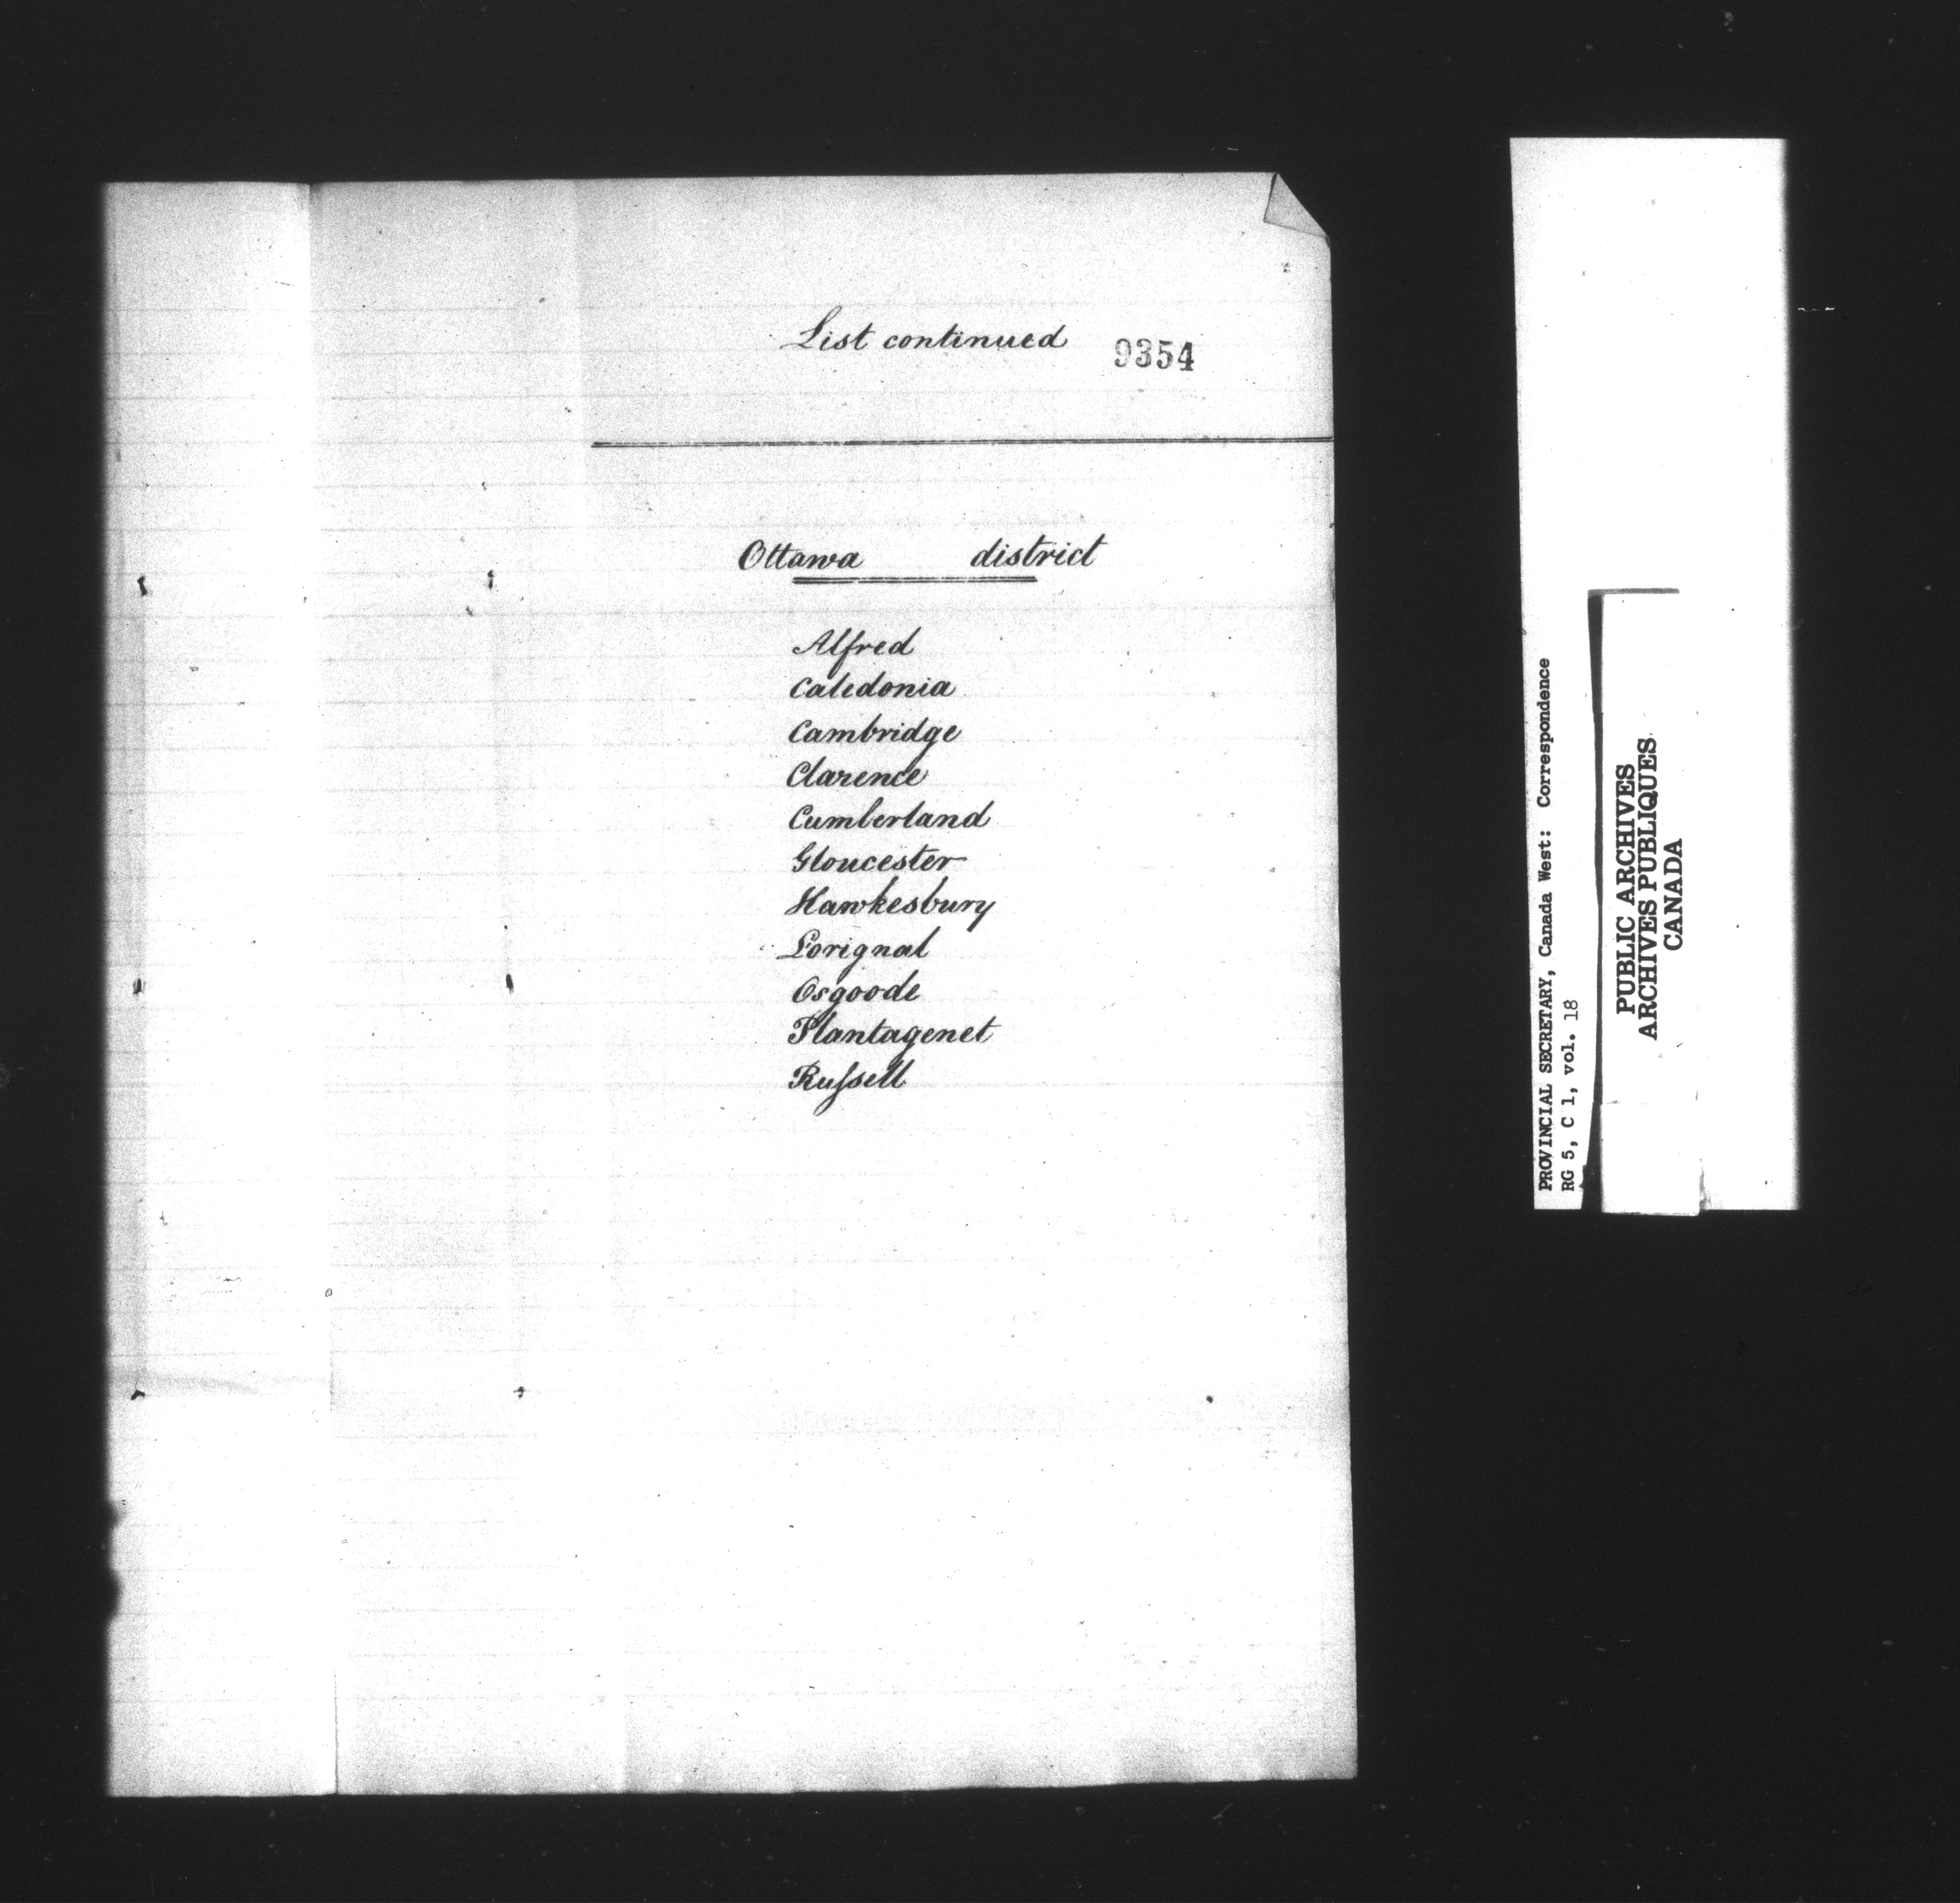 List continued 9354
Ottawa district
Alfred
Caledonia
Cambridge
Clarence
Cumberland
Gloucester
Hawkesbury
Lorignal
Osgoode
Plantagenet
Russell
PROVINCIAL SECRETARY, Canada West: Correspondence
RG 5, C 1, vol. 18
PUBLIC ARCHIVES
ARCHIVES PUBLIQUES
CANADA